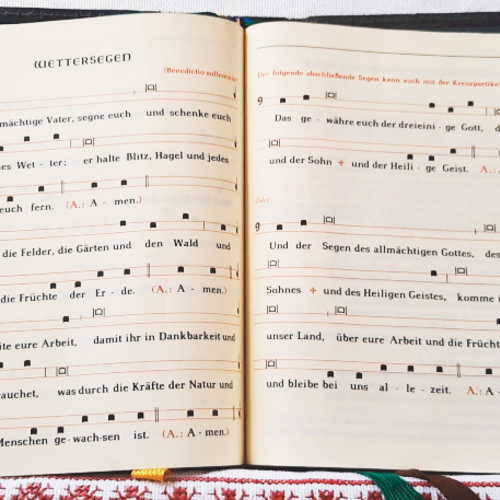 WETTERSEGEN
(Benedictio sollemnis)
mächtige Vater, segne euch und schenke euch
es Wet - ter; er halte Blitz, Hagel und jedes
euch fern. (A.: A - men.)
die Felder, die Gärten und den Wald und
die Früchte der Er - de. (A.: A - men.)
ite eure Arbeit, damit ihr in Dankbarkeit und
auchet, was durch die Kräfte der Natur und
Menschen ge-wach-sen ist. (A.: A - men.)
Der folgende abschließende Segen kann auch mit der Kreuzpartikel
Das ge - währe euch der dreieini - ge Gott, d
und der Sohn + und der Heili - ge Geist. A.:
Oder:
Und der Segen des allmächtigen Gottes, des
Sohnes + und des Heiligen Geistes, komme
unser Land, über eure Arbeit und die Frücht
und bleibe bei uns al - le - zeit. A.: A